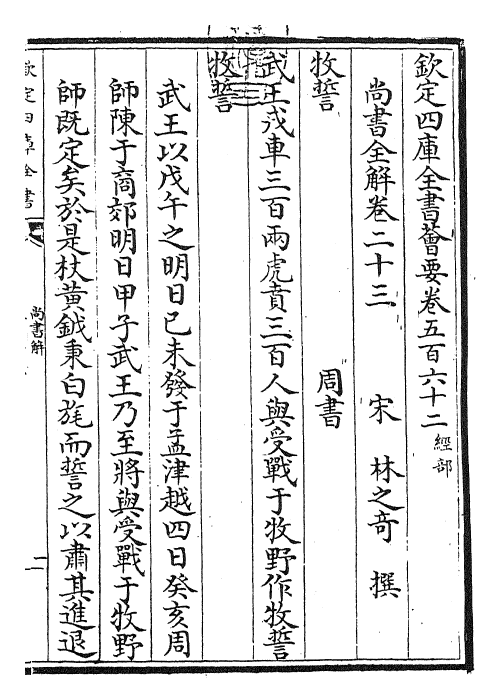 欽定四庫全書薈要卷五百六十二 經部
尚書全解卷二十三 宋 林之奇 撰
牧誓 周書
武王戎車三百兩虎賁三百人與受戰于牧野作牧誓
牧誓
武王以戊午之明日已未發于孟津越四日癸亥周
師陳于商郊明日甲子武王乃至將與受戰于牧野
師既定矣於是杖黃鉞秉白旄而誓之以肅其進退
欽定四庫全書
尚書解